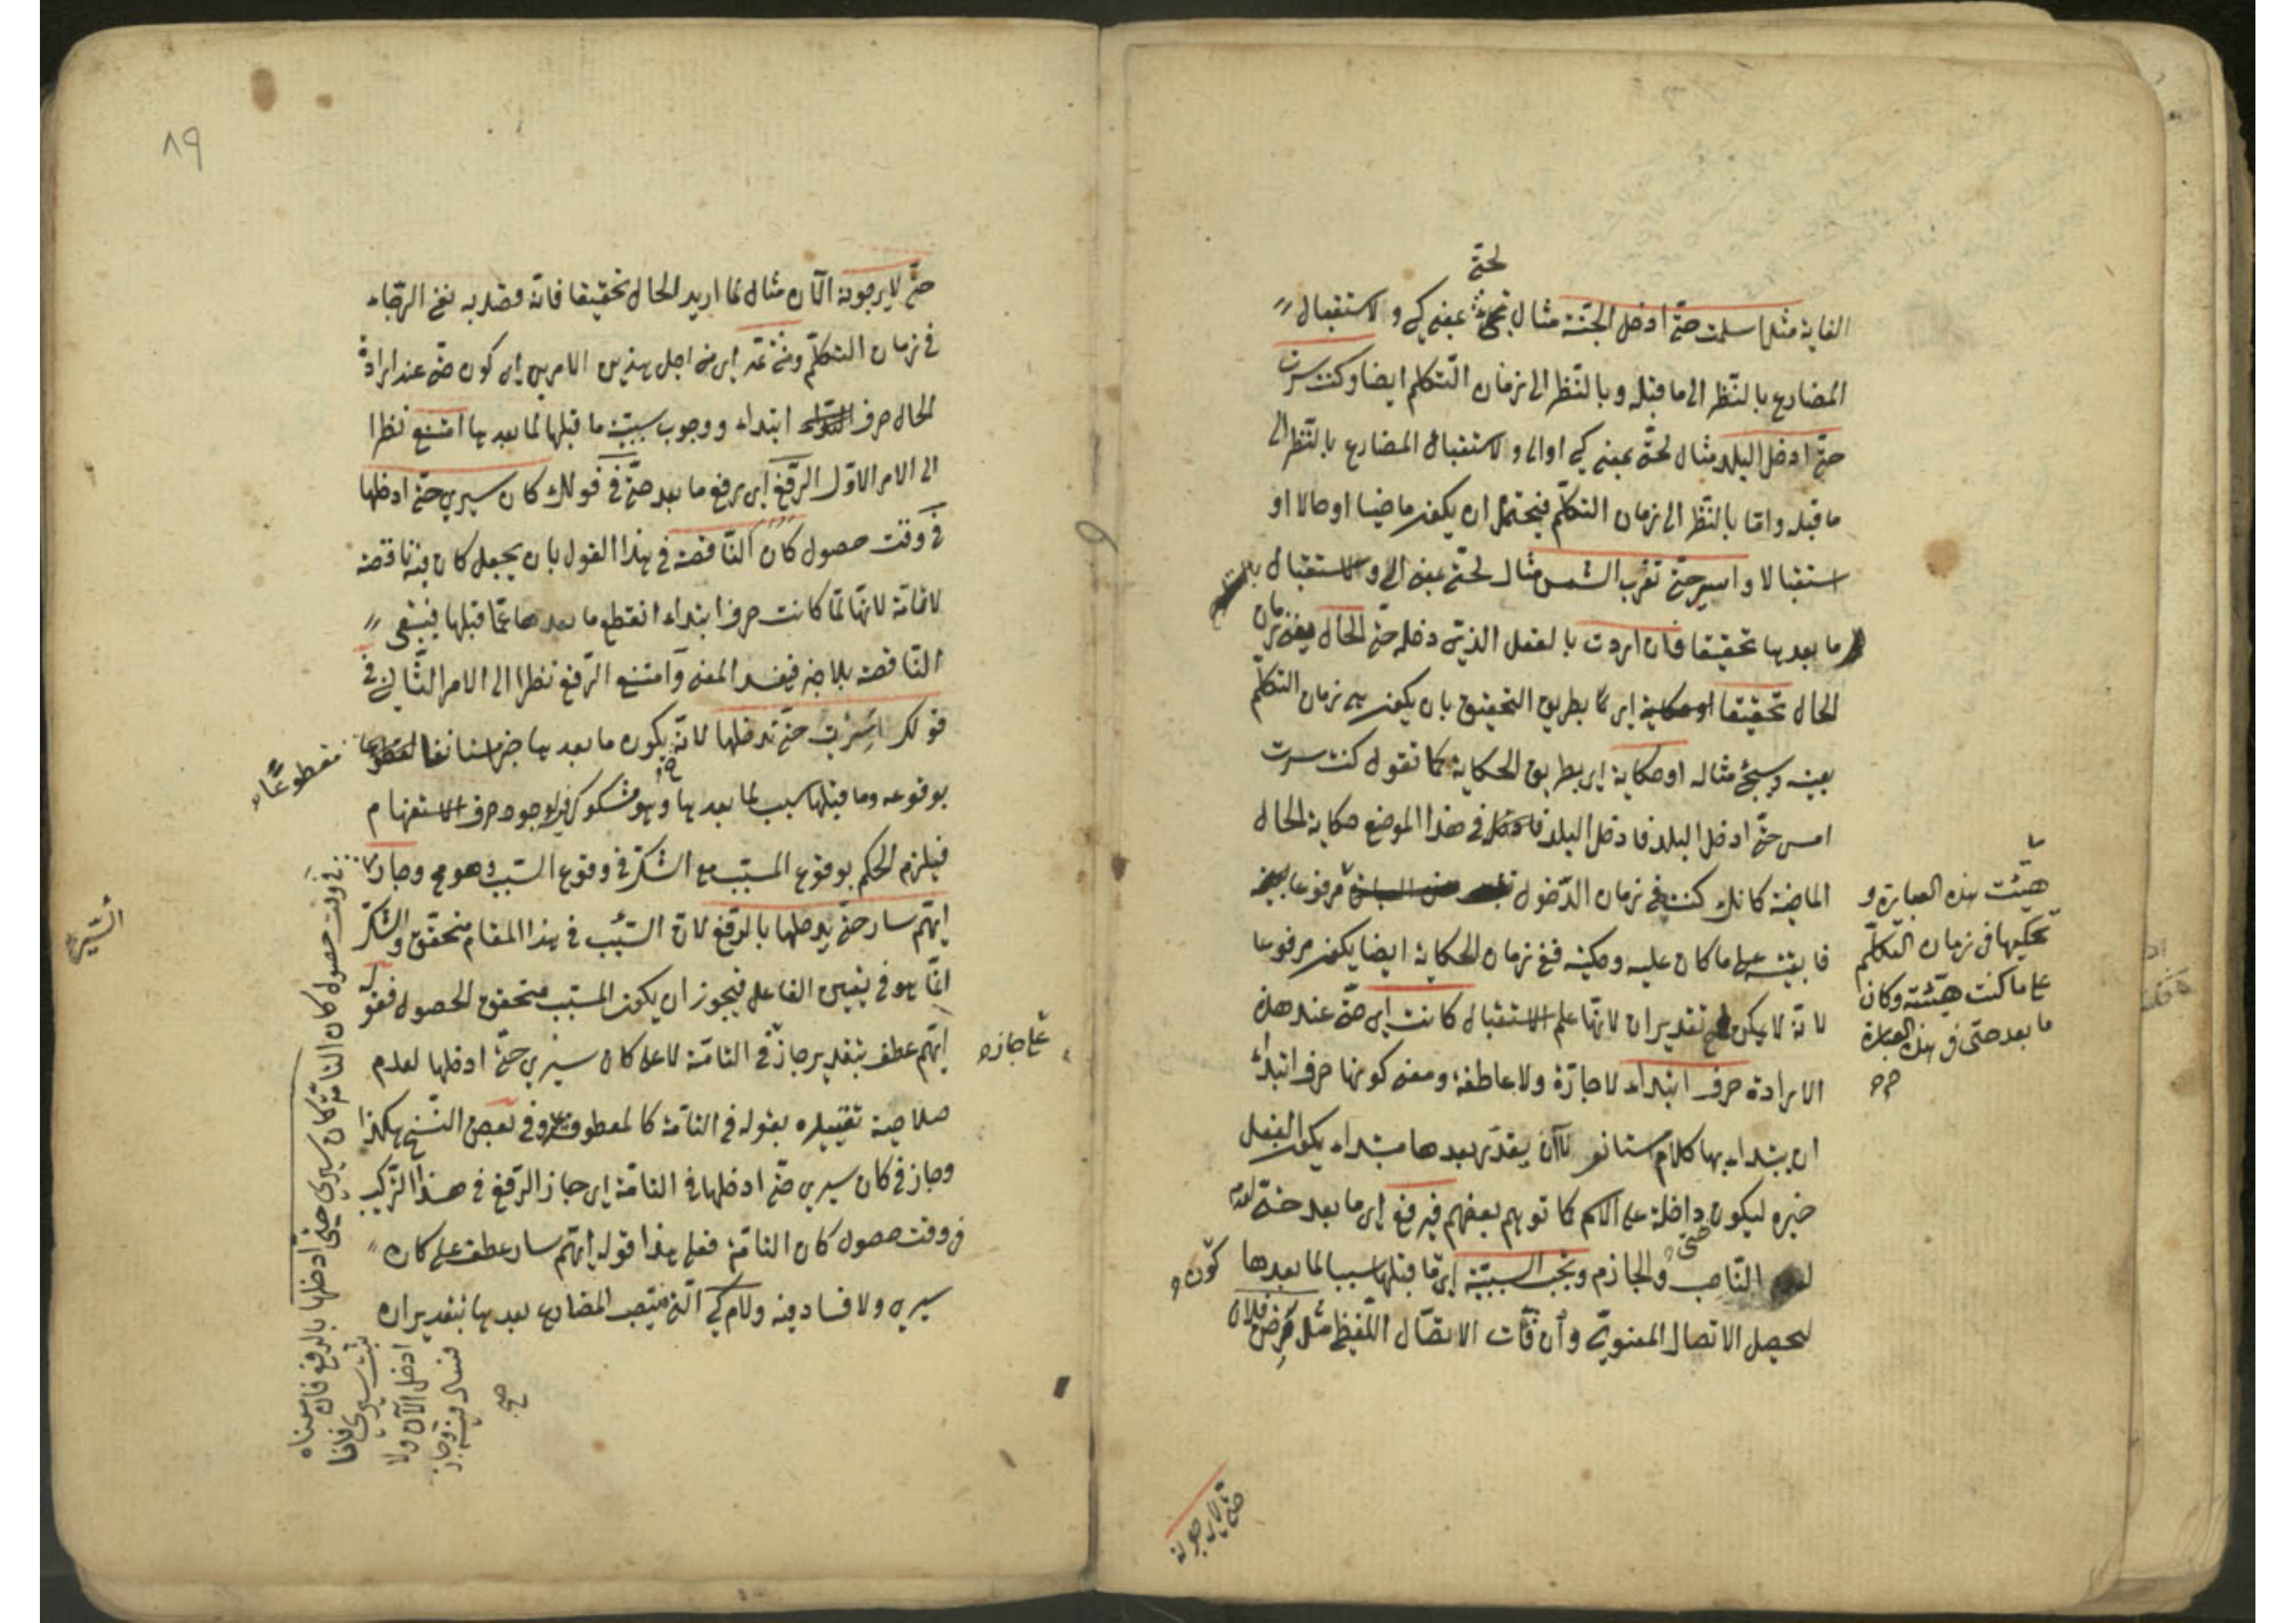 لحتى
الغاية مثل اسلمت حتى ادخل الجنة مثال لحتى بمعنى كي والاستقبال
المضارع بالنظر الى ما قبله وبالنظر الى زمان التكلم ايضا وكنت سرت
حتى ادخل البلد مثال لحتى بمعنى كي او الى والاستقبال المضارع بالنظر الى
ما قبله واما بالنظر الى زمان التكلم فيحتمل ان يكون ماضيا او حالا او
استقبالا واسير حتى تغرب الشمس مثال لحتى بمعنى الى والاستقبال
ما بعدها تحقيقا فان اردت بالفعل الذي دخله حتى الحال يعنى زمان
الحال تحقيقا اى بطريق التحقيق بان يكون هي زمان التكلم
بعينه وسيجئ مثاله او حكاية اى بطريق الحكاية كما تقول كنت سرت
امس حتى ادخل البلد فادخل البلد في هذا الموضع حكاية الحال
الماضية كانك كنت في زمان الدخول مرفوعا
هيئت هذه العبارة و
تحكيها في زمان التكلم
على ما كنت هيئته وكان
ما بعد حتى في هذه العبارة
فابقيته على ما كان عليه وحكيته ففي زمان الحكاية ايضا يكون مرفوعا
لانه لا يمكن تقدير ان لانها علم الاستقبال كانت اى حتى عند هذه
الارادة حرف ابتداء لا جارة ولا عاطفة ومعنى كونها حرف ابتداء
ان يبتداء بها كلام مستانف لا ان يقدر بعدها مبتداء يكون الفعل
خبره ليكون داخلة على الاسم كما توهم بعضهم فيرفع اى ما بعد حتى لعدم
الناصب والجازم وتجب السببية اى ما قبلها سببا لما بعدها
كون
ليحصل الاتصال المعنوي وان فات الاتصال اللفظي مثل مرض فلان
حتى لا يرجونه
٨٩
حتى لا يرجونه الآن مثال لما اريد الحال تحقيقا فانه قصد به نفى الرجاء
في زمان التكلم ومن ثمة اى من اجل هذين الامرين اى كون حتى عند ارادة
الحال حرف ابتداء ووجوب سببية ما قبلها لما بعدها امتنع نظرا
الى الامر الاول الرفع اى رفع ما بعد حتى في قولك كان سيرى حتى ادخلها
في وقت حصول كان الناقصة في هذا القول بان يجعل كان فيه ناقصة
لا تامة لانها لما كانت حرف ابتداء انقطع ما بعدها عما قبلها فيبقى
الناقصة بلا خبر فيفسد المعنى وامتنع الرفع نظرا الى الامر الثاني في
قولك اسرت حتى تدخلها لانه يكون ما بعدها خبرا مستانفا
مقطوعا
بوقوعه وما قبلها سببا لما بعدها وهو مشكوك فيه لوجود حرف الاستفهام
فيلزم الحكم بوقوع المسبب مع الشك في وقوع السبب وهو مح وجاز
ايهم سار حتى يدخلها بالرفع لان السبب في هذا المقام متحقق والشك
انما هو في تعيين الفاعل فيجوز ان يكون المسبب متحقق الحصول فقوله
ايهم عطف بتقدير جاز في التامة لا على كان سيرى حتى ادخلها لعدم
على جاز
صلاحية تقييده بقوله في التامة كالمعطوف عليه وفى بعض النسخ هكذا
وجاز في كان سيرى حتى ادخلها في التامة اى جاز الرفع في هذا التركيب
في وقت حصول كان التامة فعلى هذا قوله ايهم سار عطف على كان
سيرى ولا فساد فيه ولام كي التي ينتصب المضارع بعدها بتقدير ان
في وقت حصول كان التامة كان سيرى حتى ادخلها بالرفع فان معناه
ثبت سيرى فانا
ادخل الآن ولا
فساد فيه وجاز
صح
السير